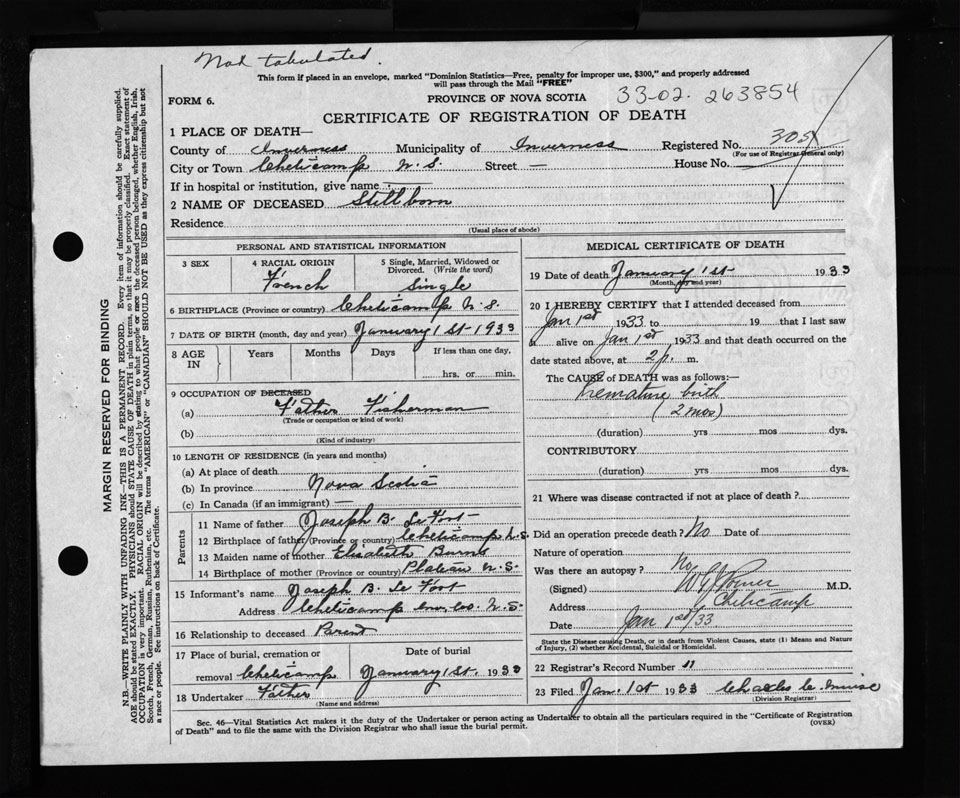 Not tabulated.
This form if placed in an envelope, marked "Dominion Statistics—Free, penalty for improper use, $300," and properly addressed
will pass through the Mail "FREE"
FORM 6.
PROVINCE OF NOVA SCOTIA
33-02. 263854
CERTIFICATE OF REGISTRATION OF DEATH
1 PLACE OF DEATH—
County of Inverness Municipality of Inverness Registered No. 305
(For use of Registrar General only)
City or Town Cheticamp N.S. Street — House No.
If in hospital or institution, give name
2 NAME OF DECEASED Stillborn
Residence
(Usual place of abode)
PERSONAL AND STATISTICAL INFORMATION
3 SEX 4 RACIAL ORIGIN 5 Single, Married, Widowed or Divorced. (Write the word)
French Single
6 BIRTHPLACE (Province or country) Cheticamp N.S.
7 DATE OF BIRTH (month, day and year) January 1st 1933
8 AGE IN Years Months Days If less than one day,
hrs. or min.
9 OCCUPATION OF DECEASED
(a) Father Fisherman
(Trade or occupation or kind of work)
(b)
(Kind of industry)
10 LENGTH OF RESIDENCE (in years and months)
(a) At place of death
(b) In province Nova Scotia
(c) In Canada (if an immigrant) —
Parents
11 Name of father Joseph B. Le Fort
12 Birthplace of father (Province or country) Cheticamp N.S.
13 Maiden name of mother Elisabeth Burns
14 Birthplace of mother (Province or country) Plateau N.S.
15 Informant's name Joseph B. Le Fort
Address Cheticamp Inv. Co. N.S.
16 Relationship to deceased Parent
17 Place of burial, cremation or removal Date of burial
Cheticamp January 1st. 1933
18 Undertaker Father
(Name and address)
MEDICAL CERTIFICATE OF DEATH
19 Date of death January 1st 1933
(Month, day and year)
20 I HEREBY CERTIFY that I attended deceased from
Jan 1st 1933 to 19 that I last saw
h alive on Jan 1st 1933 and that death occurred on the
date stated above, at 2 p. m.
The CAUSE of DEATH was as follows:—
Premature birth
(2 mos)
(duration) yrs mos dys.
CONTRIBUTORY
(duration) yrs mos dys.
21 Where was disease contracted if not at place of death?
Did an operation precede death? No Date of
Nature of operation
Was there an autopsy? No
(Signed) M.D.
Address Cheticamp
Date Jan 1st/33
State the Disease causing Death, or in death from Violent Causes, state (1) Means and Nature of Injury, (2) whether Accidental, Suicidal or Homicidal.
22 Registrar's Record Number 11
23 Filed Jan. 1st 1933 Charles
(Division Registrar)
Sec. 46—Vital Statistics Act makes it the duty of the Undertaker or person acting as Undertaker to obtain all the particulars required in the "Certificate of Registration
of Death" and to file the same with the Division Registrar who shall issue the burial permit.
(OVER)
MARGIN RESERVED FOR BINDING
N.B.—WRITE PLAINLY WITH UNFADING INK—THIS IS A PERMANENT RECORD. Every item of information should be carefully supplied.
AGE should be stated EXACTLY. PHYSICIANS should STATE CAUSE OF DEATH in plain terms, so that it may be properly classified. Exact statement of
OCCUPATION is very important. RACIAL ORIGIN will be described by stating to what people or race the deceased person belonged, whether English, Irish,
Scotch, French, German, Russian, Ruthenian, etc. The terms "AMERICAN" or "CANADIAN" SHOULD NOT BE USED as they express citizenship but not
a race or people. See instructions on back of Certificate.